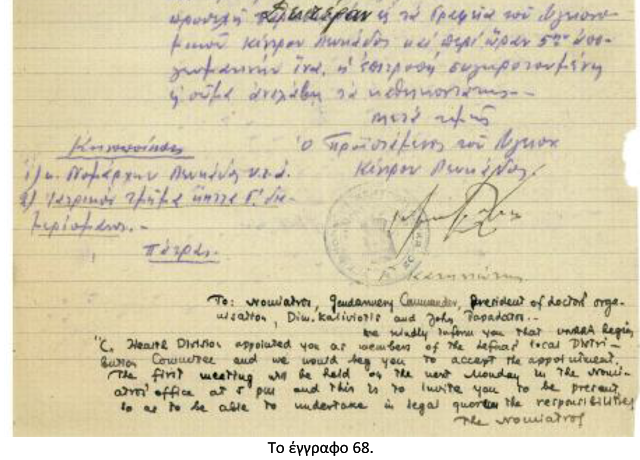 προσεχῆ Δευτέραν εἰς τὰ Γραφεῖα τοῦ Ὑγειονο-
μικοῦ Κέντρου Λευκάδος καὶ περὶ ὥραν 5ην ἀπο-
γευματινήν ἵνα, ἡ ἐπιτροπή συγκροτουμένη
εἰς σῶμα ἀναλάβῃ τὰ καθήκοντά της.-
Μετά τιμῆς
Ὁ Προϊστάμενος τοῦ Ὑγειον
Κέντρου Λευκάδος.
Κοινοποίησις
1) κ. Νομάρχην Λευκάδος
2) Ἰατρικόν τμῆμα
μερίσματος.-
Πάτρας.
To: Nomiatros, Gendarmery Commander, President of doctors' orga-
nisation, Dim. Kaliviotis and John Papadatos.-
We kindly inform you that UNRRA Region
"C. Health Division appointed you as members of the Lefkas local Distri-
bution Committee and we would beg you to accept the appointment.
The first meeting will be held on the next Monday in the Nomi-
atros' office at 5 pm and this is to invite you to be present
so as to be able to undertake in legal quorum the responsibilities
The Nomiatros
Το έγγραφο 68.